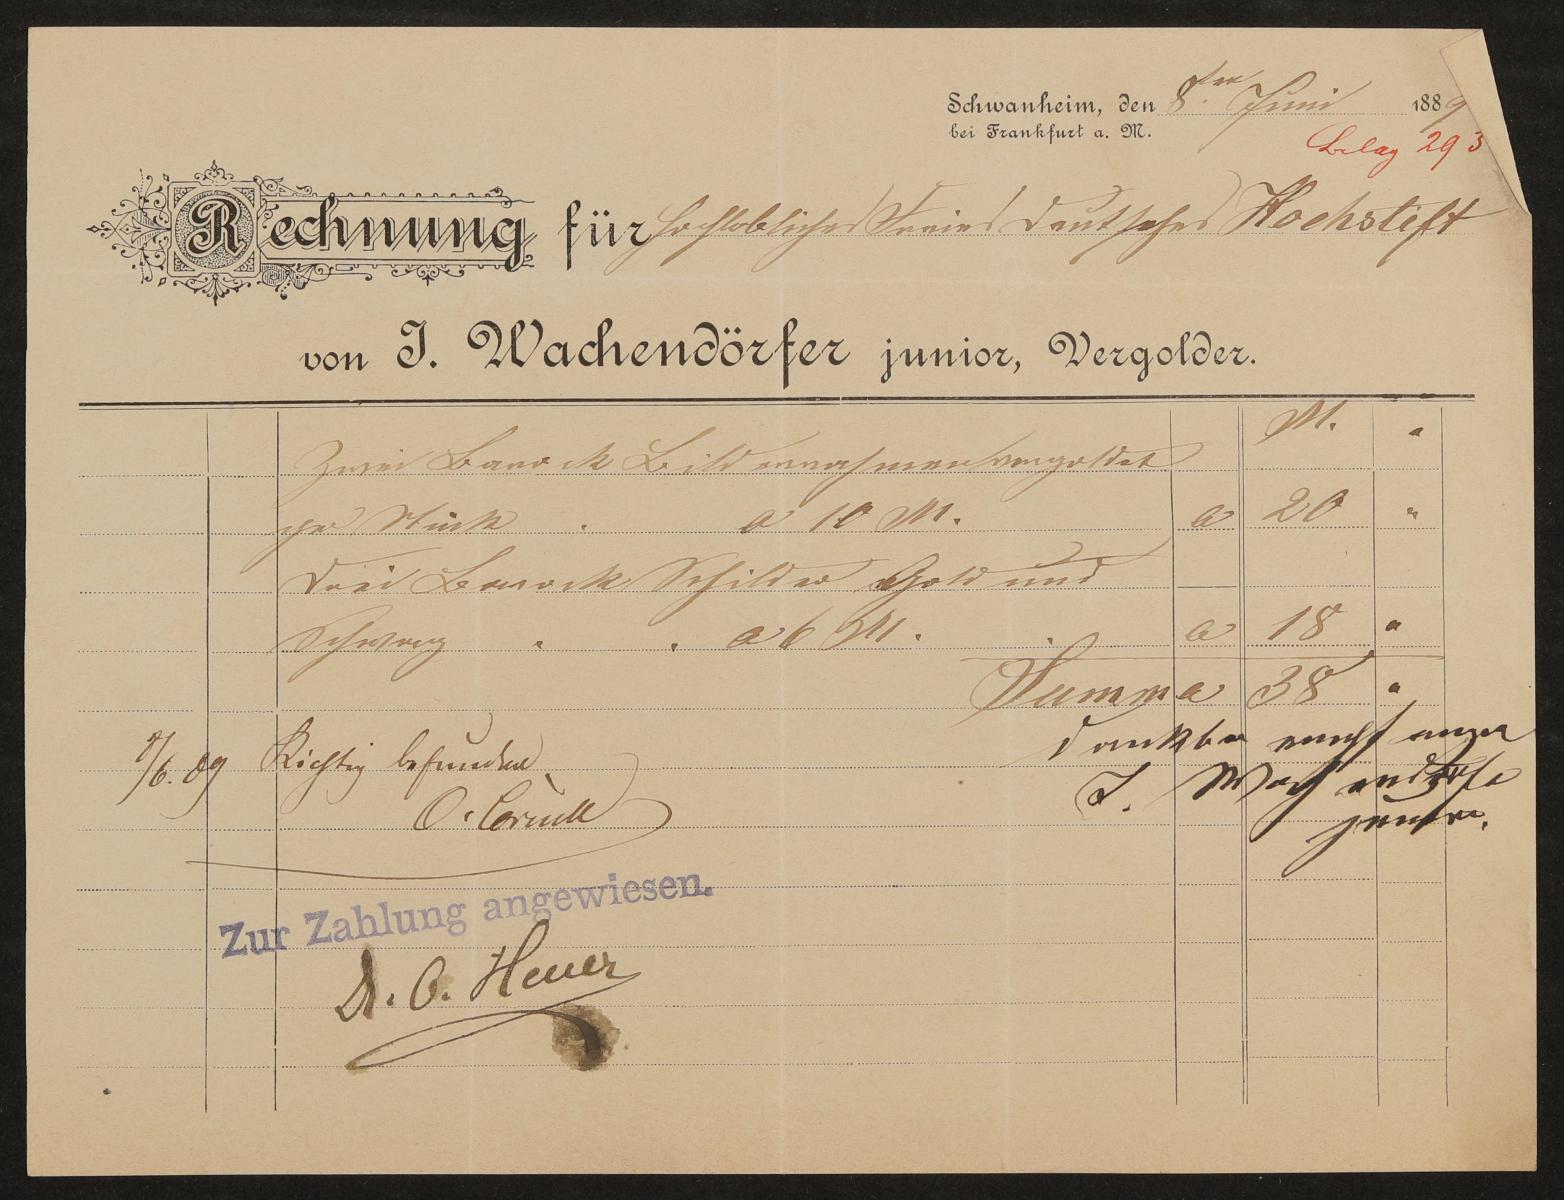 Schwanheim, den 8ten Juni 1889
bei Frankfurt a. M.
Belag 293
Rechnung für Hochlobliches Freies Deutsches Hochstift
von J. Wachendörfer junior, Vergolder.
M. "
Zwei Barock Bilderrahmen vergoldet
per Stück . a 10 M. a 20 "
Drei Barock Schilder Gold und
Schwarz " . a 6 M. . a 18 "
Summa 38 "
dankbar
8/6. 89 Richtig befunden
J. Wachendörfer
O.
junior.
Zur Zahlung angewiesen.
Dr. O. Heuer